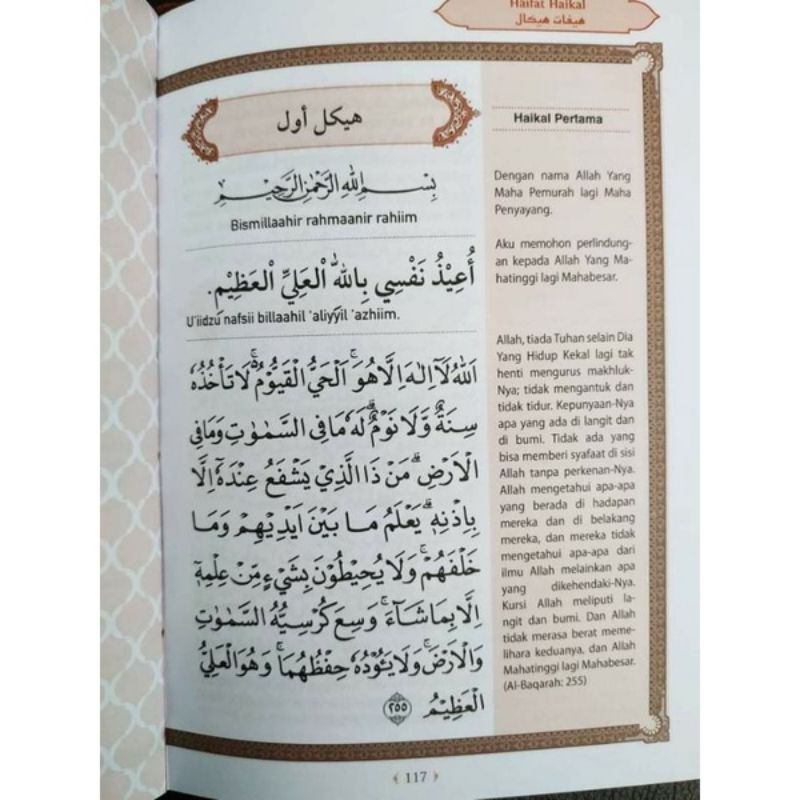 Haifat Haikal
هيفات هيكال
هيكل أول
بِسْمِ اللهِ الرَّحْمٰنِ الرَّحِيْمِ
Bismillaahir rahmaanir rahiim
أُعِيْذُ نَفْسِي بِاللهِ الْعَلِيِّ الْعَظِيْمِ.
U'iidzu nafsii billaahil 'aliyyil 'azhiim.
اَللهُ لَآ اِلٰهَ اِلَّا هُوَۚ اَلْحَيُّ الْقَيُّوْمُ ەۚ لَا تَأْخُذُهٗ
سِنَةٌ وَّلَا نَوْمٌۗ لَهٗ مَا فِى السَّمٰوٰتِ وَمَا فِى
الْاَرْضِۗ مَنْ ذَا الَّذِيْ يَشْفَعُ عِنْدَهٗٓ اِلَّا
بِاِذْنِهٖۗ يَعْلَمُ مَا بَيْنَ اَيْدِيْهِمْ وَمَا
خَلْفَهُمْۚ وَلَا يُحِيْطُوْنَ بِشَيْءٍ مِّنْ عِلْمِهٖٓ
اِلَّا بِمَا شَاۤءَۚ وَسِعَ كُرْسِيُّهُ السَّمٰوٰتِ
وَالْاَرْضَۚ وَلَا يَـُٔوْدُهٗ حِفْظُهُمَاۚ وَهُوَ الْعَلِيُّ
الْعَظِيْمُ ٢٥٥
Haikal Pertama
Dengan nama Allah Yang
Maha Pemurah lagi Maha
Penyayang.
Aku memohon perlindung-
an kepada Allah Yang Ma-
hatinggi lagi Mahabesar.
Allah, tiada Tuhan selain Dia
Yang Hidup Kekal lagi tak
henti mengurus makhluk-
Nya; tidak mengantuk dan
tidak tidur. Kepunyaan-Nya
apa yang ada di langit dan
di bumi. Tidak ada yang
bisa memberi syafaat di sisi
Allah tanpa perkenan-Nya.
Allah mengetahui apa-apa
yang berada di hadapan
mereka dan di belakang
mereka, dan mereka tidak
mengetahui apa-apa dari
ilmu Allah melainkan apa
yang dikehendaki-Nya.
Kursi Allah meliputi la-
ngit dan bumi. Dan Allah
tidak merasa berat meme-
lihara keduanya, dan Allah
Mahatinggi lagi Mahabesar.
(Al-Baqarah: 255)
117